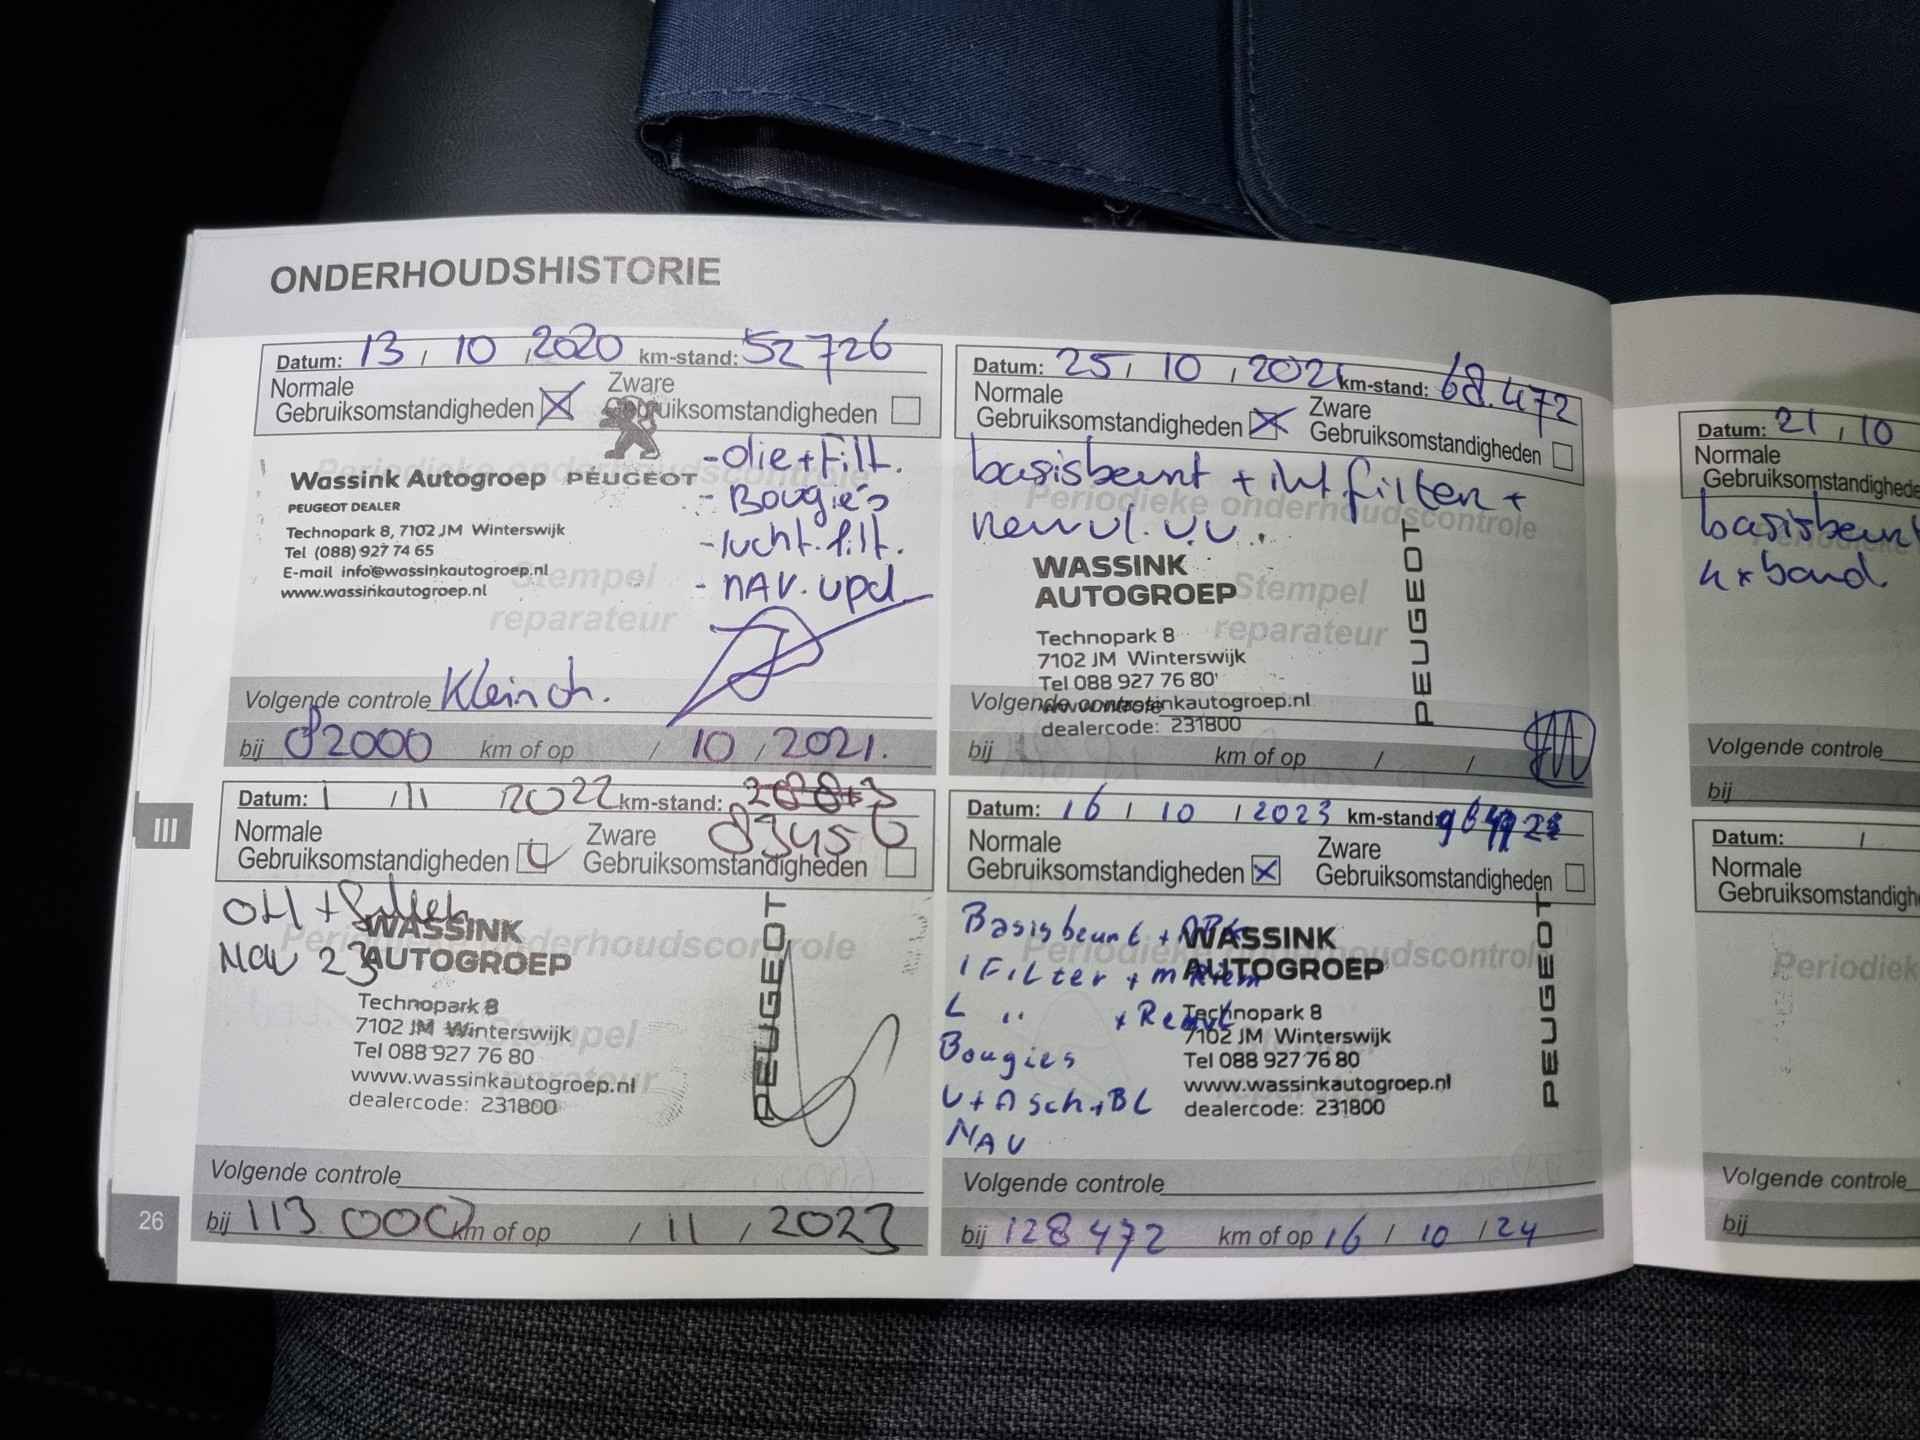 ONDERHOUDSHISTORIE
Datum: 13 / 10 / 2020 km-stand: 52726
Normale
Gebruiksomstandigheden
Zware
Gebruiksomstandigheden
Periodieke onderhoudscontrole
Wassink Autogroep PEUGEOT
PEUGEOT DEALER
Technopark 8, 7102 JM Winterswijk
Tel (088) 927 74 65
E-mail info@wassinkautogroep.nl
www.wassinkautogroep.nl
Stempel
reparateur
- olie + Filt.
- Bougie's
- lucht. filt.
- NAV. upd
Volgende controle Klein oh.
bij 82000 km of op / 10 / 2021.
Datum: 25 / 10 / 2021 km-stand: 68.472
Normale
Gebruiksomstandigheden
Zware
Gebruiksomstandigheden
basisbeurt + int filter +
remvl. v.v.
Periodieke onderhoudscontrole
WASSINK
AUTOGROEP
PEUGEOT
Stempel
reparateur
Technopark 8
7102 JM Winterswijk
Tel 088 927 76 80
www.wassinkautogroep.nl
dealercode: 231800
Volgende controle
bij km of op / /
Datum: 1 / 11 2022 km-stand:
83456
Normale
Gebruiksomstandigheden
Zware
Gebruiksomstandigheden
OH + filter
Nav 23
Periodieke onderhoudscontrole
WASSINK
AUTOGROEP
PEUGEOT
Technopark 8
7102 JM Winterswijk
Tel 088 927 76 80
www.wassinkautogroep.nl
dealercode: 231800
Stempel
reparateur
Volgende controle
bij 113 000 km of op / 11 / 2023
Datum: 16 / 10 / 2023 km-stand:
Normale
Gebruiksomstandigheden
Zware
Gebruiksomstandigheden
Basisbeurt +
I Filter +
L ,, +
Bougies
V + A sch + BL
NAV
Periodieke onderhoudscontrole
WASSINK
AUTOGROEP
PEUGEOT
Technopark 8
7102 JM Winterswijk
Tel 088 927 76 80
www.wassinkautogroep.nl
dealercode: 231800
Volgende controle
bij 128 472 km of op 16 / 10 / 24
III
26
Datum: 21 / 10
Normale
Gebruiksomstandighede
basisbeurt
4x band
Volgende controle
bij
Datum: /
Normale
Gebruiksomstandigh
Periodiek
Volgende controle
bij